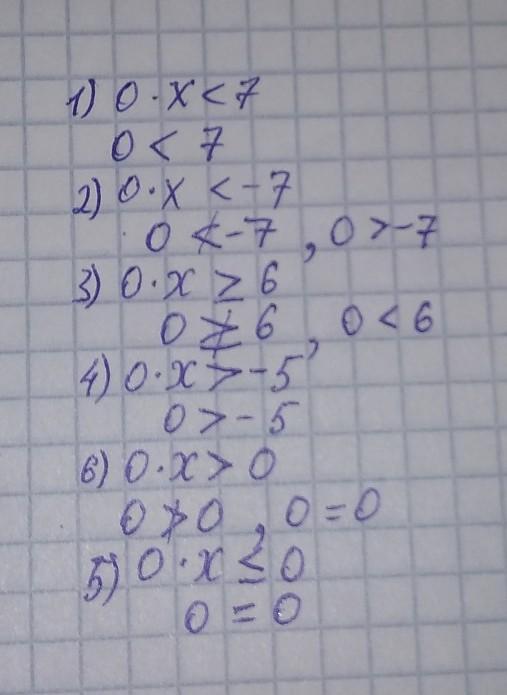 1) 0 · x < 7
0 < 7
2) 0 · x < -7
0 ≮ -7 , 0 > -7
3) 0 · x ≥ 6
0 ≱ 6 , 0 < 6
4) 0 · x > -5
0 > -5
6) 0 · x > 0
0 ≯ 0 , 0 = 0
5) 0 · x ≤ 0
0 = 0